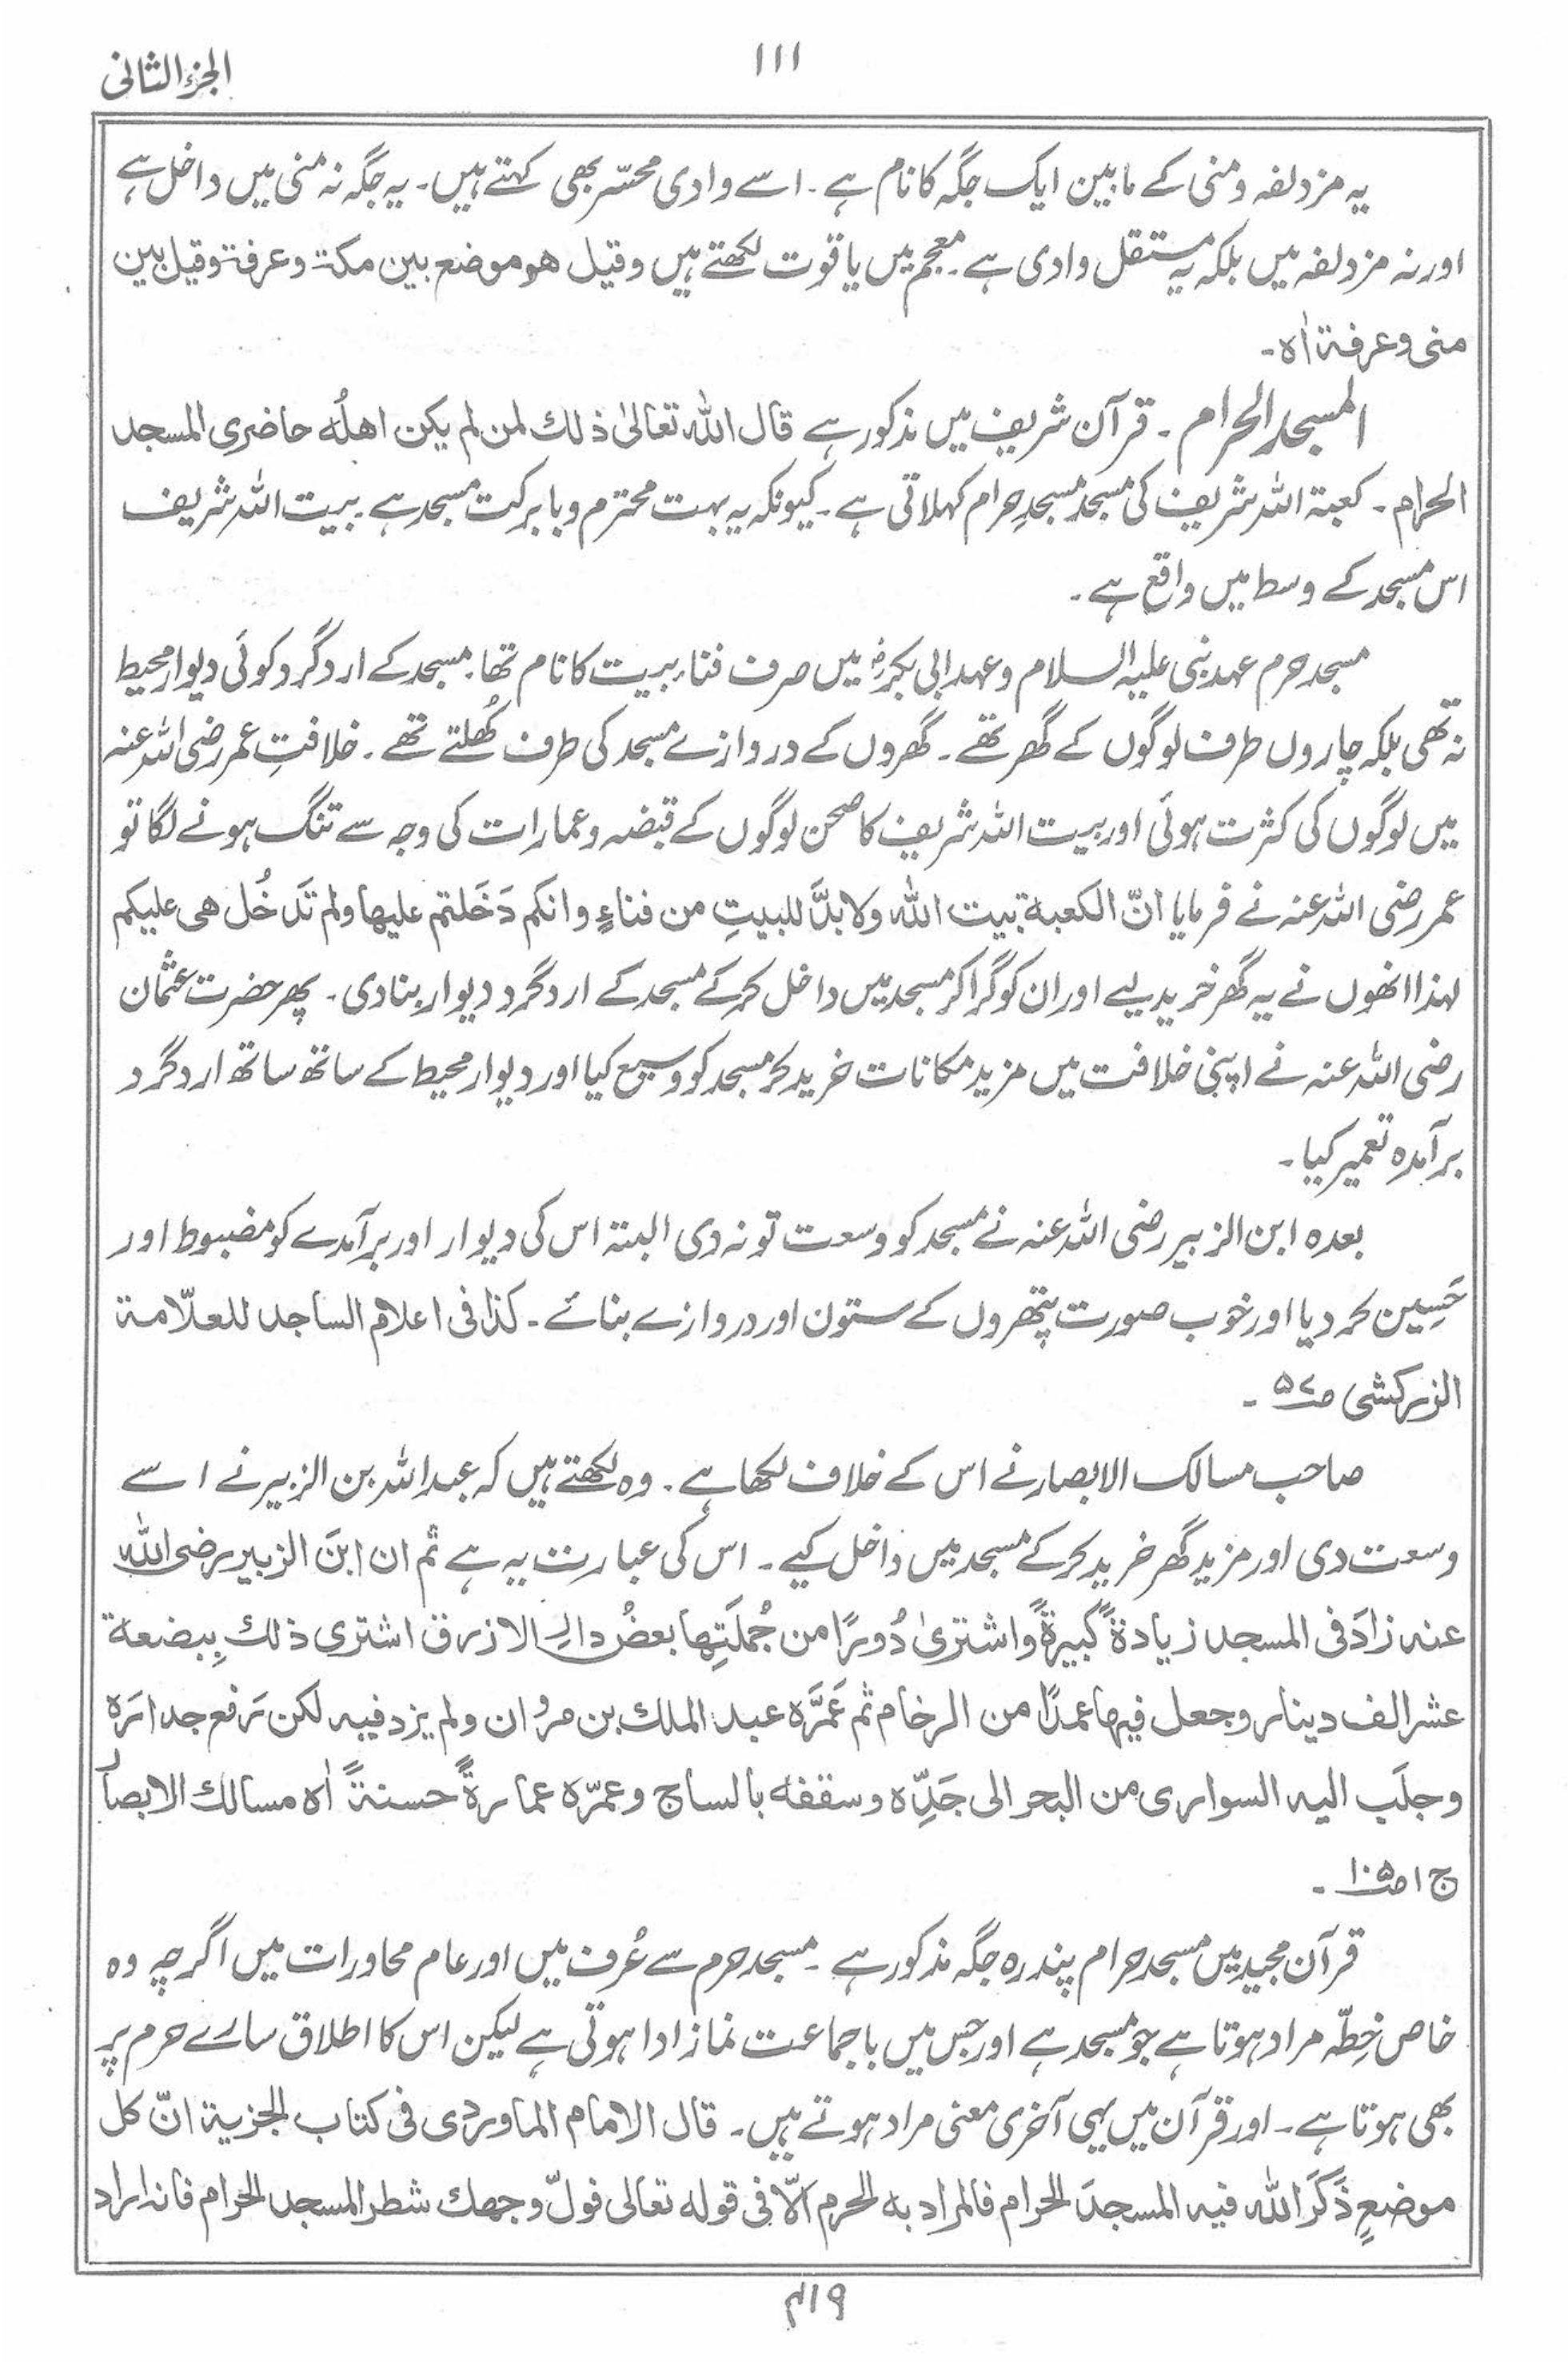 الجزء الثانی
۱۱۱
یہ مزدلفہ و منی کے مابین ایک جگہ کا نام ہے ۔ اسے وادی محسّر بھی کہتے ہیں ۔ یہ جگہ نہ منی میں داخل ہے
اور نہ مزدلفہ میں بلکہ یہ مستقل وادی ہے ۔ معجم میں یاقوت لکھتے ہیں وقیل هو موضع بین مکة وعرفة وقیل بین
منی وعرفة اه ۔
المسجد الحرام ۔ قرآن شریف میں مذکور ہے قال الله تعالیٰ ذلك لمن لم یکن اهلُه حاضری المسجد
الحرام ۔ کعبۃ اللہ شریف کی مسجد مسجدِ حرام کہلاتی ہے ۔ کیونکہ یہ بہت محترم و بابرکت مسجد ہے ۔ بیت اللہ شریف
اس مسجد کے وسط میں واقع ہے ۔
مسجد حرم عہد نبی علیہ السلام و عہد ابی بکرؓ میں صرف فناء بیت کا نام تھا ۔ مسجد کے ارد گرد کوئی دیوار محیط
نہ تھی بلکہ چاروں طرف لوگوں کے گھر تھے ۔ گھروں کے دروازے مسجد کی طرف کُھلتے تھے ۔ خلافتِ عمر رضی اللہ عنہ
میں لوگوں کی کثرت ہوئی اور بیت اللہ شریف کا صحن لوگوں کے قبضہ و عمارات کی وجہ سے تنگ ہونے لگا تو
عمر رضی اللہ عنہ نے فرمایا انّ الکعبة بیت الله ولا بدَّ للبیتِ من فناءٍ وانکم دَخَلتم علیها ولم تَدخُل هی علیکم
لہذا انھوں نے یہ گھر خرید لیے اور ان کو گرا کر مسجد میں داخل کر کے مسجد کے ارد گرد دیوار بنا دی ۔ پھر حضرت عثمان
رضی اللہ عنہ نے اپنی خلافت میں مزید مکانات خرید کر مسجد کو وسیع کیا اور دیوار محیط کے ساتھ ساتھ ارد گرد
برآمدہ تعمیر کیا ۔
بعدہ ابن الزبیر رضی اللہ عنہ نے مسجد کو وسعت تو نہ دی البتہ اس کی دیوار اور برآمدے کو مضبوط اور
حَسِین کر دیا اور خوب صورت پتھروں کے ستون اور دروازے بنائے ۔ کذا فی اعلام الساجد للعلّامة
الزرکشی ص۵۷ ۔
صاحب مسالک الابصار نے اس کے خلاف لکھا ہے ۔ وہ لکھتے ہیں کہ عبد اللہ بن الزبیر نے اسے
وسعت دی اور مزید گھر خرید کر کے مسجد میں داخل کیے ۔ اس کی عبارت یہ ہے ثم ان ابنَ الزبیر رضی الله
عنه زادَ فی المسجد زیادةً کبیرةً واشتریٰ دُورًا من جُملَتِها بعضُ دارِ الازرق اشتری ذلك بِبضعة
عشر الف دینار وجعل فیها عمدًا من الرخام ثم عَمَّرَه عبد الملك بن مروان ولم یزد فیه لکن رَفع جدارَه
وجلَب الیه السواری من البحر الی جَدِّه وسقفه بالساج وعمّره عمارةً حسنةً اه مسالك الابصار
ج۱ ص۱۰۵ ۔
قرآن مجید میں مسجد حرام پندرہ جگہ مذکور ہے ۔ مسجد حرم سے عُرف میں اور عام محاورات میں اگرچہ وہ
خاص خِطّہ مراد ہوتا ہے جو مسجد ہے اور جس میں باجماعت نماز ادا ہوتی ہے لیکن اس کا اطلاق سارے حرم پر
بھی ہوتا ہے ۔ اور قرآن میں یہی آخری معنی مراد ہوتے ہیں ۔ قال الامام الماوردی فی کتاب الجزیة انّ کل
موضعٍ ذَکَرَ الله فیه المسجدَ الحرام فالمراد به الحرم الّا فی قوله تعالی فولّ وجهك شطر المسجد الحرام فانه اراد
۴۱۹